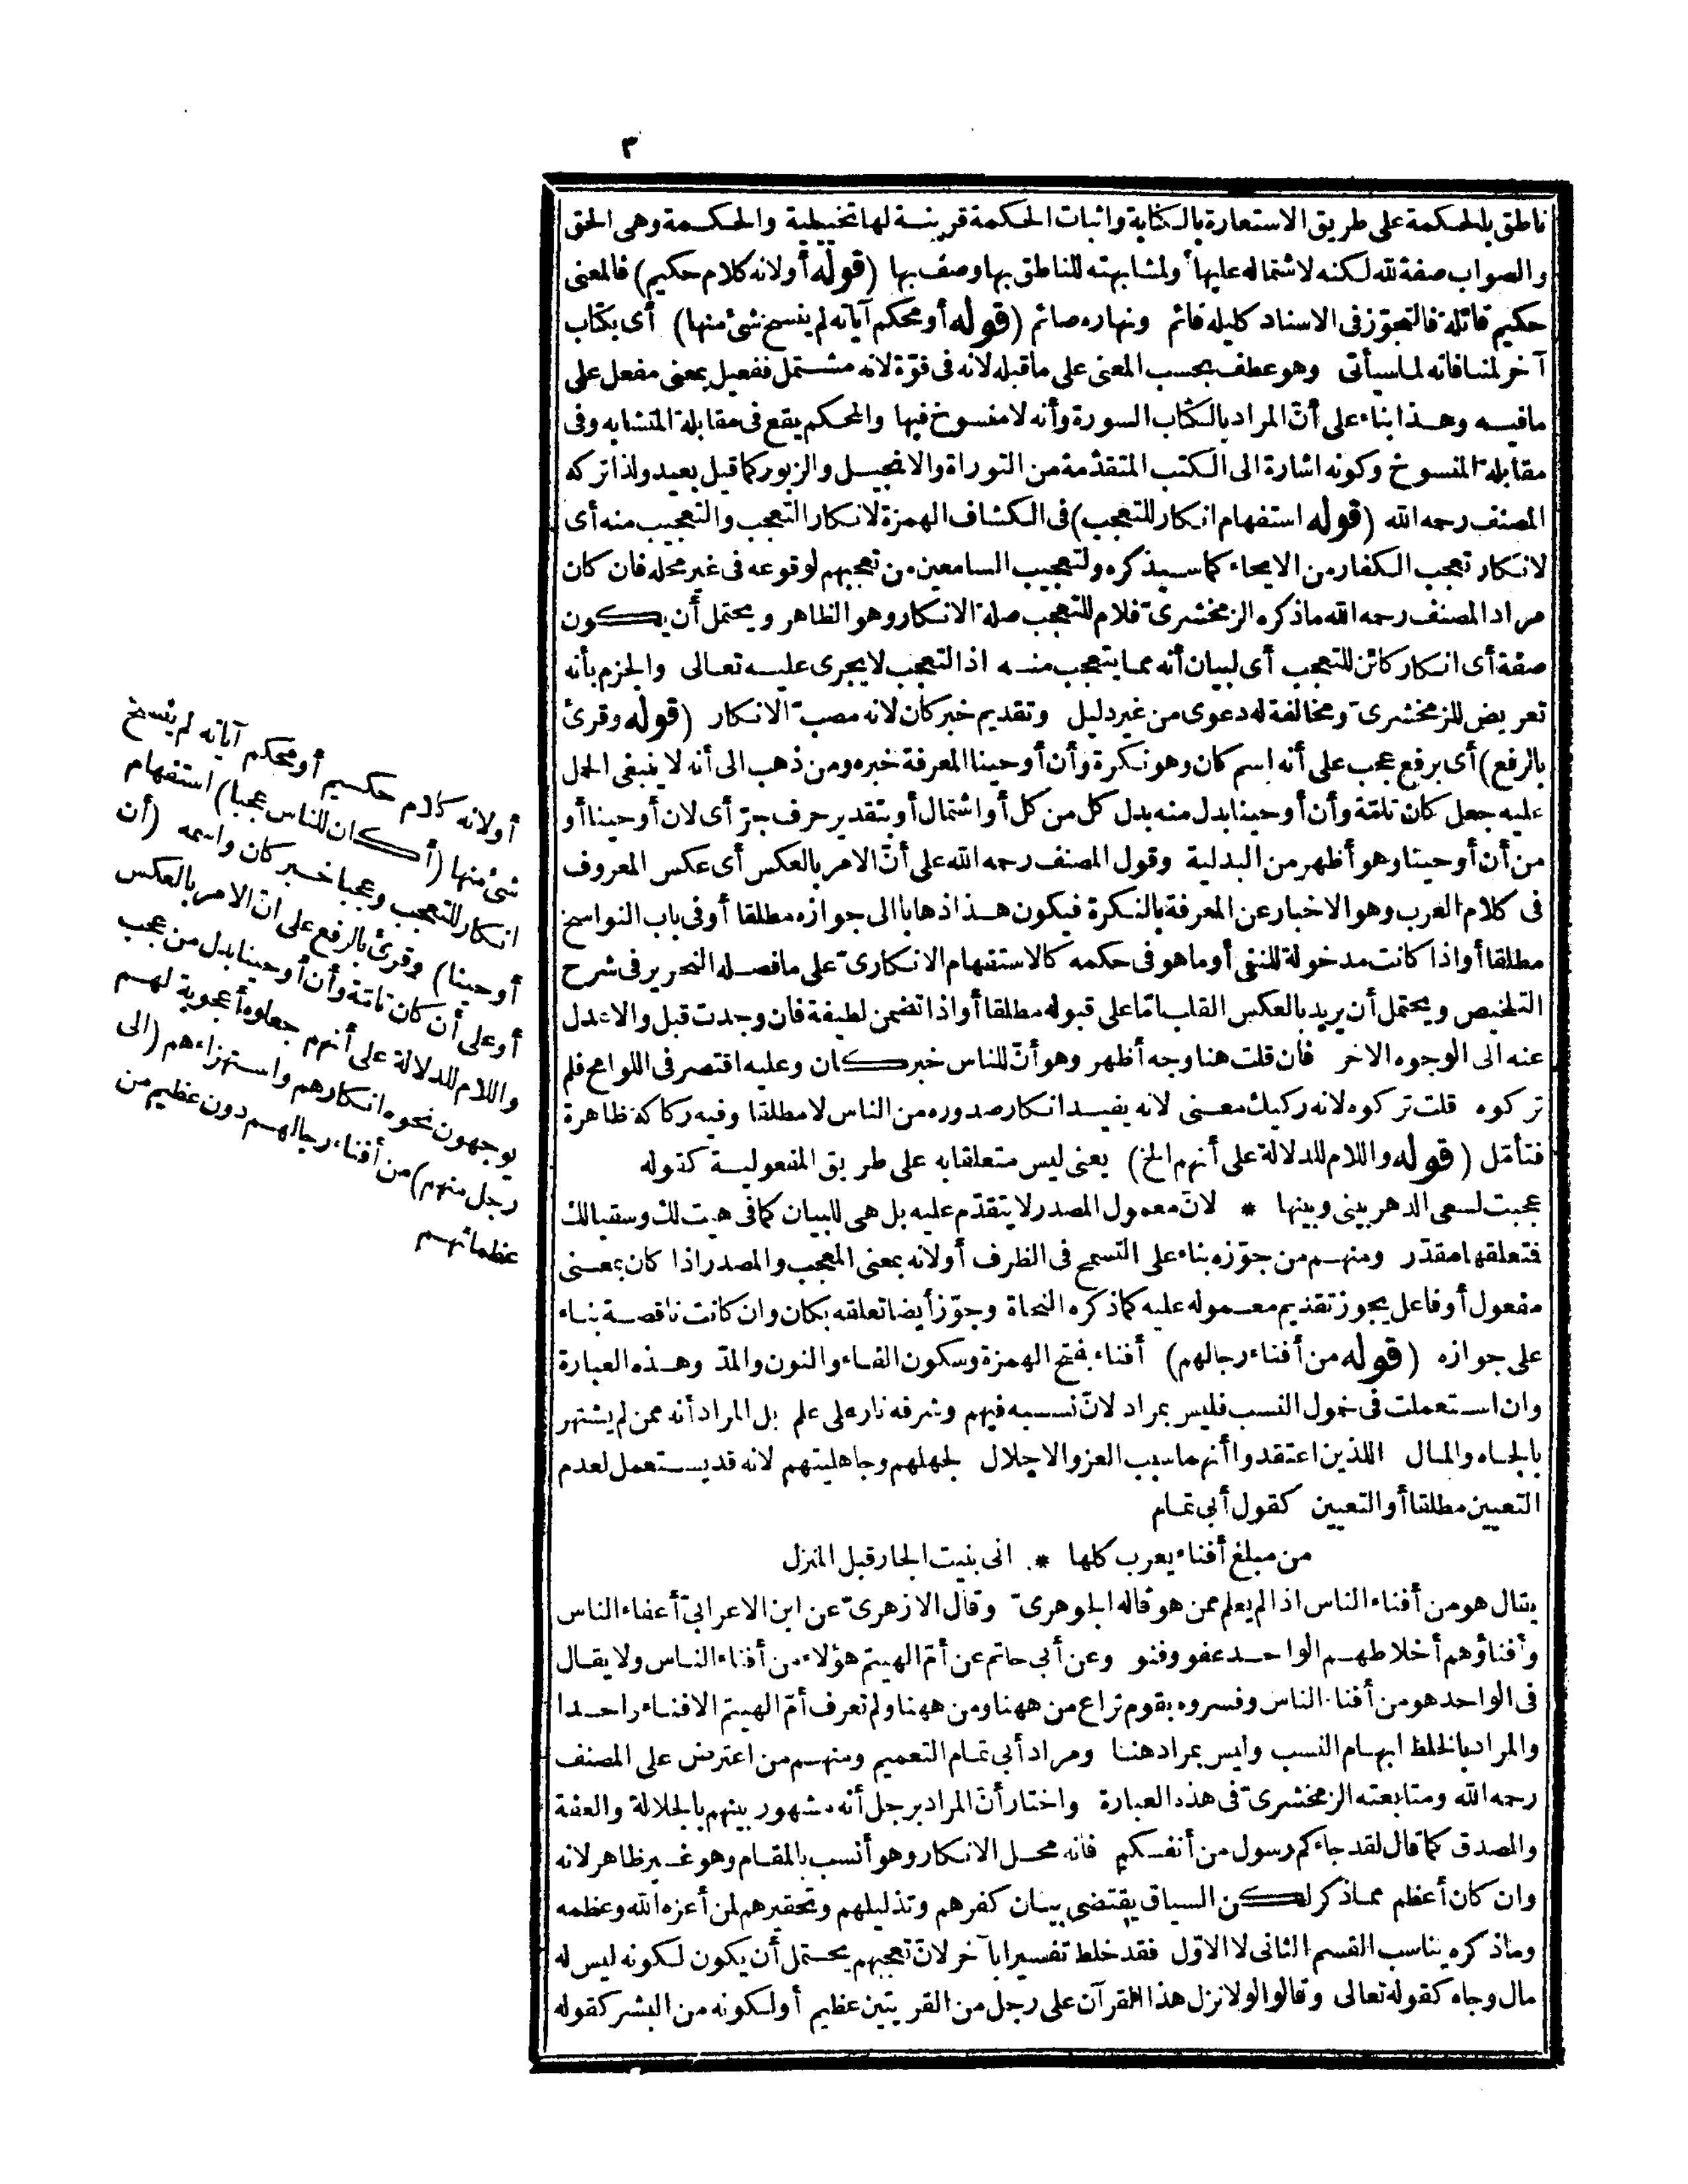 ٣
ناطق بالحكمة على طريق الاستعارة بالكناية واثبات الحكمة قرينة لها تخييلية والحكمة وهى الحق
والصواب صفة لله لكنه لاشتماله عليها ولمشابهته للناطق بها وصف بها (قوله أولانه كلام حكيم) فالمعنى
حكيم قائله فالتجوّز فى الاسناد كليله قائم ونهاره صائم (قوله أو محكم آياته لم ينسخ شئ منها) أى بكتاب
آخر لمنافاته لما سيأتى وهو عطف بحسب المعنى على ماقبله لانه فى قوّة لانه مشتمل ففعيل بمعنى مفعل على
مافيه وهذا بناء على أنّ المراد بالكتاب السورة وأنه لا منسوخ فيها والمحكم يقع فى مقابلة المتشابه وفى
مقابلة المنسوخ وكونه اشارة الى الكتب المتقدّمة من التوراة والانجيل والزبور كما قيل بعيد ولذا تركه
المصنف رحمه الله (قوله استفهام انكار للتعجب) فى الكشاف الهمزة لانكار التعجب والتعجيب منه أى
لانكار تعجب الكفار من الايحاء كما سيذكره ولتعجيب السامعين من تعجبهم لوقوعه فى غير محله فان كان
مراد المصنف رحمه الله ماذكره الزمخشرىّ فلام للتعجب صلة الانكار وهو الظاهر ويحتمل أن يكون
صفة أى انكار كائن للتعجب أى لبيان أنه مما يتعجب منه اذ التعجب لايجرى عليه تعالى والجزم بأنه
تعريض للزمخشرىّ ومخالفة له دعوى من غير دليل وتقديم خبر كان لانه مصب الانكار (قوله وقرئ
بالرفع) أى برفع عجب على أنه اسم كان وهو نكرة وأن أوحينا المعرفة خبره ومن ذهب الى أنه لا ينبغى الحمل
عليه جعل كان تامّة وأن أوحينا بدل منه بدل كل من كل أو اشتمال أو بتقدير حرف جرّ أى لان أوحينا أو
من أن أوحينا وهو أظهر من البدلية وقول المصنف رحمه الله على أنّ الامر بالعكس أى عكس المعروف
فى كلام العرب وهو الاخبار عن المعرفة بالنكرة فيكون هذا ذهابا الى جوازه مطلقا أو فى باب النواسخ
مطلقا أو اذا كانت مدخولة للنفى أو ما هو فى حكمه كالاستفهام الانكارىّ على مافصله النحرير فى شرح
التلخيص ويحتمل أن يريد بالعكس القلب امّا على قبوله مطلقا أو اذا تضمن لطيفة فان وجدت قبل والاعدل
عنه الى الوجوه الاخر فان قلت هنا وجه أظهر وهو أنّ للناس خبر كان وعليه اقتصر فى اللوامح فلم
تركوه قلت تركوه لانه ركيك معنى لانه يفيد انكار صدوره من الناس لا مطلقا وفيه ركاكة ظاهرة
فتأمّل (قوله واللام للدلالة على أنهم الخ) يعنى ليس متعلقا به على طريق المفعولية كقوله
عجبت لسعى الدهر بينى وبينها * لانّ معمول المصدر لا يتقدّم عليه بل هى للبيان كما فى هيت لك وسقيا لك
فتعلقها مقدّر ومنهم من جوّزه بناء على التسمح فى الظرف أولانه بمعنى المعجب والمصدر اذا كان بمعنى
مفعول أو فاعل يجوز تقديم معموله عليه كما ذكره النحاة وجوّز أيضا تعلقه بكان وان كانت ناقصة بناء
على جوازه (قوله من أفناء رجالهم) أفناء بفتح الهمزة وسكون الفاء والنون والمدّ وهذه العبارة
وان استعملت فى خمول النسب فليس بمراد لانّ نسبه فيهم وشرفه نار على علم بل المراد أنه ممن لم يشتهر
بالجاه والمال اللذين اعتقدوا أنهما سبب العز والاجلال لجهلهم وجاهليتهم لانه قد يستعمل لعدم
التعيين مطلقا أو التعيين كقول أبى تمام
من مبلغ أفناء يعرب كلها * انى بنيت الجار قبل المنزل
يقال هو من أفناء الناس اذا لم يعلم ممن هو قاله الجوهرىّ وقال الازهرىّ عن ابن الاعرابىّ أعفاء الناس
وأفناؤهم أخلاطهم الواحد عفو وفنو وعن أبى حاتم عن أمّ الهيثم هؤلاء من أفناء الناس ولا يقال
فى الواحد هو من أفناء الناس وفسروه بقوم نزاع من ههنا ومن ههنا ولم تعرف أمّ الهيثم الافناء واحدا
والمراد بالخلط ابهام النسب وليس بمراد هنا ومراد أبى تمام التعميم ومنهم من اعترض على المصنف
رحمه الله ومتابعته الزمخشرىّ فى هذه العبارة واختار أنّ المراد برجل أنه مشهور بينهم بالجلالة والعفة
والصدق كما قال لقد جاءكم رسول من أنفسكم فانه محل الانكار وهو أنسب بالمقام وهو غير ظاهر لانه
وان كان أعظم مما ذكر لكن السياق يقتضى بيان كفرهم وتذليلهم وتحقيرهم لمن أعزه الله وعظمه
وماذكره يناسب القسم الثانى لا الاوّل فقد خلط تفسيرا بآخر لانّ تعجبهم يحتمل أن يكون لكونه ليس له
مال وجاه كقوله تعالى وقالوا لولا نزل هذا القرآن على رجل من القريتين عظيم أو لكونه من البشر كقوله
أولانه كلام حكيم أو محكم آياته لم ينسخ
شئ منها (أكان للناس عجبا) استفهام
انكار للتعجب وعجبا خبر كان واسمه (أن
أوحينا) وقرئ بالرفع على انّ الامر بالعكس
أو على أن كان تامّة وأن أوحينا بدل من عجب
واللام للدلالة على أنهم جعلوه أعجوبة لهم
يوجهون نحوه انكارهم واستهزاءهم (الى
رجل منهم) من أفناء رجالهم دون عظيم من
عظمائهم